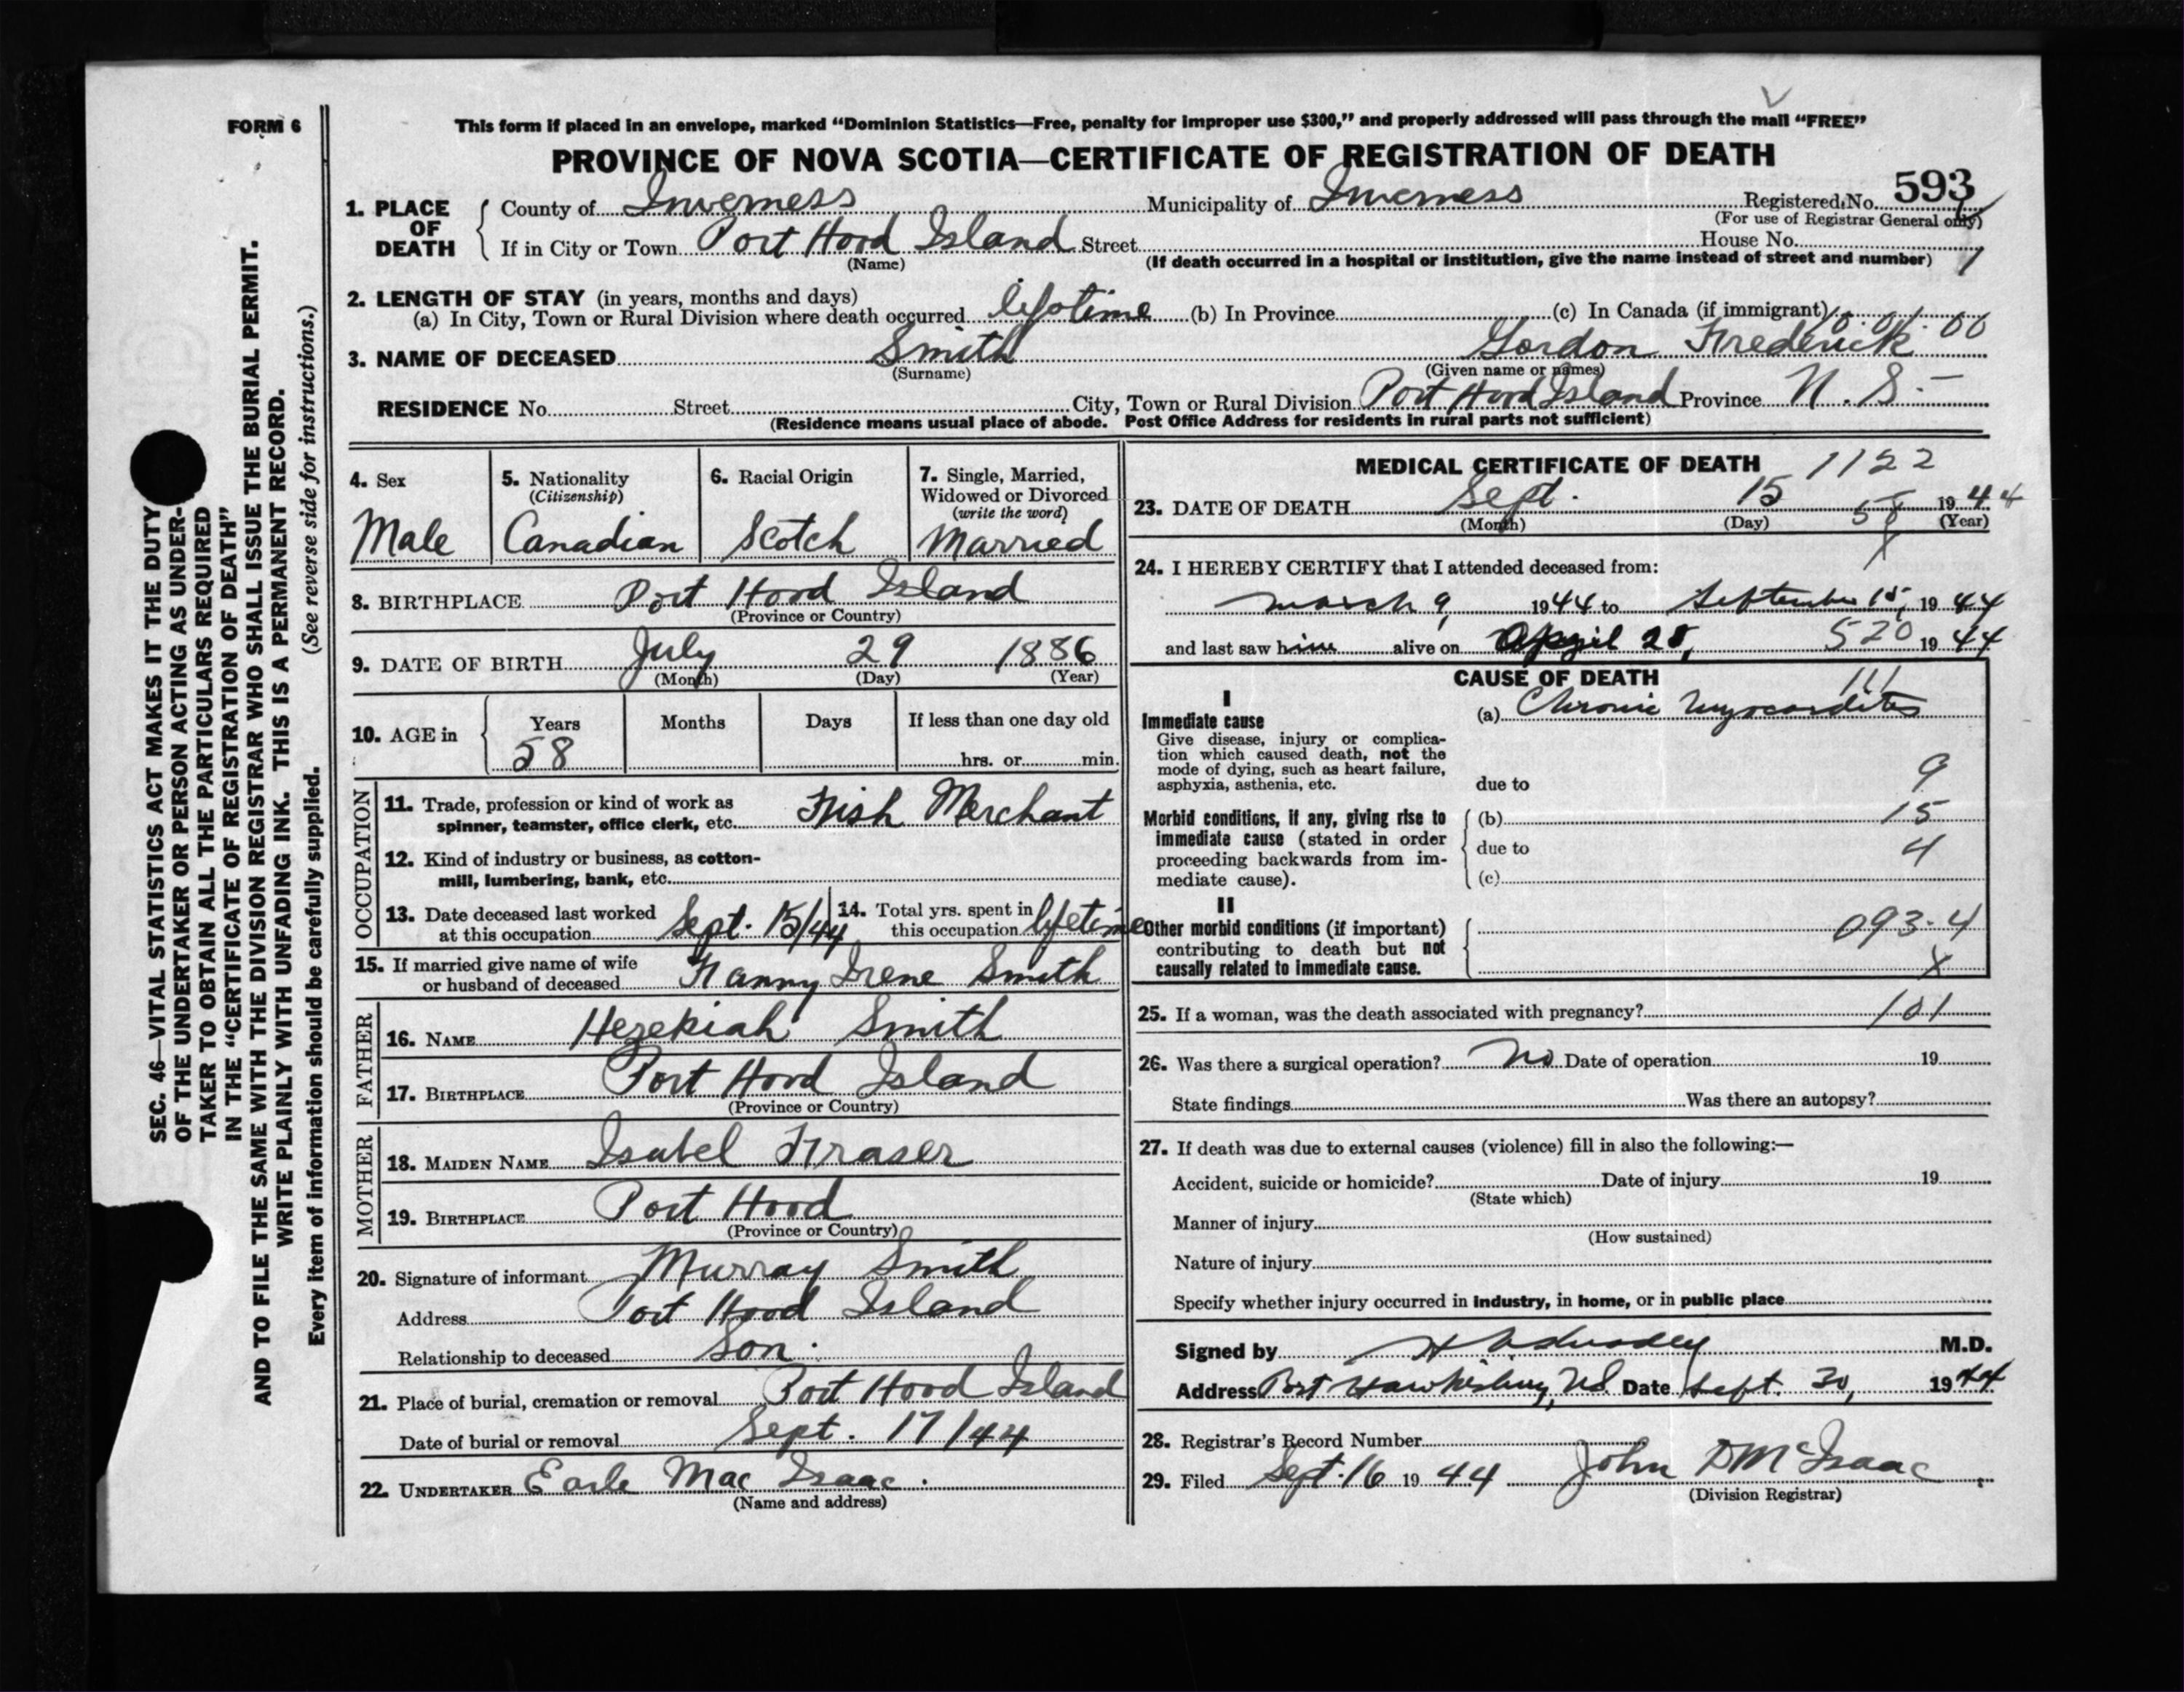 FORM 6
This form if placed in an envelope, marked "Dominion Statistics—Free, penalty for improper use $300," and properly addressed will pass through the mail "FREE"
PROVINCE OF NOVA SCOTIA—CERTIFICATE OF REGISTRATION OF DEATH
1. PLACE OF DEATH
County of Inverness Municipality of Inverness Registered No. 593
(For use of Registrar General only)
If in City or Town Port Hood Island Street House No.
(Name) (If death occurred in a hospital or institution, give the name instead of street and number) 1
2. LENGTH OF STAY (in years, months and days)
(a) In City, Town or Rural Division where death occurred lifetime (b) In Province (c) In Canada (if immigrant)
3. NAME OF DECEASED Smith Gordon Frederick
(Surname) (Given name or names)
RESIDENCE No. Street City, Town or Rural Division Port Hood Island Province N.S.
(Residence means usual place of abode. Post Office Address for residents in rural parts not sufficient)
SEC. 46—VITAL STATISTICS ACT MAKES IT THE DUTY
OF THE UNDERTAKER OR PERSON ACTING AS UNDER-
TAKER TO OBTAIN ALL THE PARTICULARS REQUIRED
IN THE "CERTIFICATE OF REGISTRATION OF DEATH"
AND TO FILE THE SAME WITH THE DIVISION REGISTRAR WHO SHALL ISSUE THE BURIAL PERMIT.
WRITE PLAINLY WITH UNFADING INK. THIS IS A PERMANENT RECORD.
Every item of information should be carefully supplied. (See reverse side for instructions.)
4. Sex
Male
5. Nationality
(Citizenship)
Canadian
6. Racial Origin
Scotch
7. Single, Married,
Widowed or Divorced
(write the word)
Married
8. BIRTHPLACE Port Hood Island
(Province or Country)
9. DATE OF BIRTH July 29 1886
(Month) (Day) (Year)
10. AGE in Years Months Days If less than one day old
58 hrs. or min.
OCCUPATION
11. Trade, profession or kind of work as
spinner, teamster, office clerk, etc. Fish Merchant
12. Kind of industry or business, as cotton-
mill, lumbering, bank, etc.
13. Date deceased last worked
at this occupation Sept. 15/44
14. Total yrs. spent in
this occupation lifetime
15. If married give name of wife
or husband of deceased Fanny Irene Smith
FATHER
16. NAME Hezekiah Smith
17. BIRTHPLACE Port Hood Island
(Province or Country)
MOTHER
18. MAIDEN NAME Isabel Fraser
19. BIRTHPLACE Port Hood
(Province or Country)
20. Signature of informant Murray Smith
Address Port Hood Island
Relationship to deceased Son.
21. Place of burial, cremation or removal Port Hood Island
Date of burial or removal Sept. 17/44
22. UNDERTAKER Earle Mac Isaac.
(Name and address)
MEDICAL CERTIFICATE OF DEATH 1122
23. DATE OF DEATH Sept. 15 1944
(Month) (Day) 58 (Year)
24. I HEREBY CERTIFY that I attended deceased from:
March 9, 1944 to September 15, 1944
and last saw him alive on April 28, 520 1944
CAUSE OF DEATH
111
I
Immediate cause
Give disease, injury or complica-
tion which caused death, not the
mode of dying, such as heart failure,
asphyxia, asthenia, etc.
(a) Chronic Myocarditis
9
due to
Morbid conditions, if any, giving rise to
immediate cause (stated in order
proceeding backwards from im-
mediate cause).
(b) 15
due to 4
(c)
II
Other morbid conditions (if important)
contributing to death but not
causally related to immediate cause.
093-4
X
25. If a woman, was the death associated with pregnancy? 101
26. Was there a surgical operation? No Date of operation 19
State findings Was there an autopsy?
27. If death was due to external causes (violence) fill in also the following:—
Accident, suicide or homicide? Date of injury 19
(State which)
Manner of injury
(How sustained)
Nature of injury
Specify whether injury occurred in industry, in home, or in public place
Signed by M.D.
Address Port Hawkesbury, N.S. Date Sept. 30, 1944
28. Registrar's Record Number
29. Filed Sept. 16 1944 John D McIsaac
(Division Registrar)